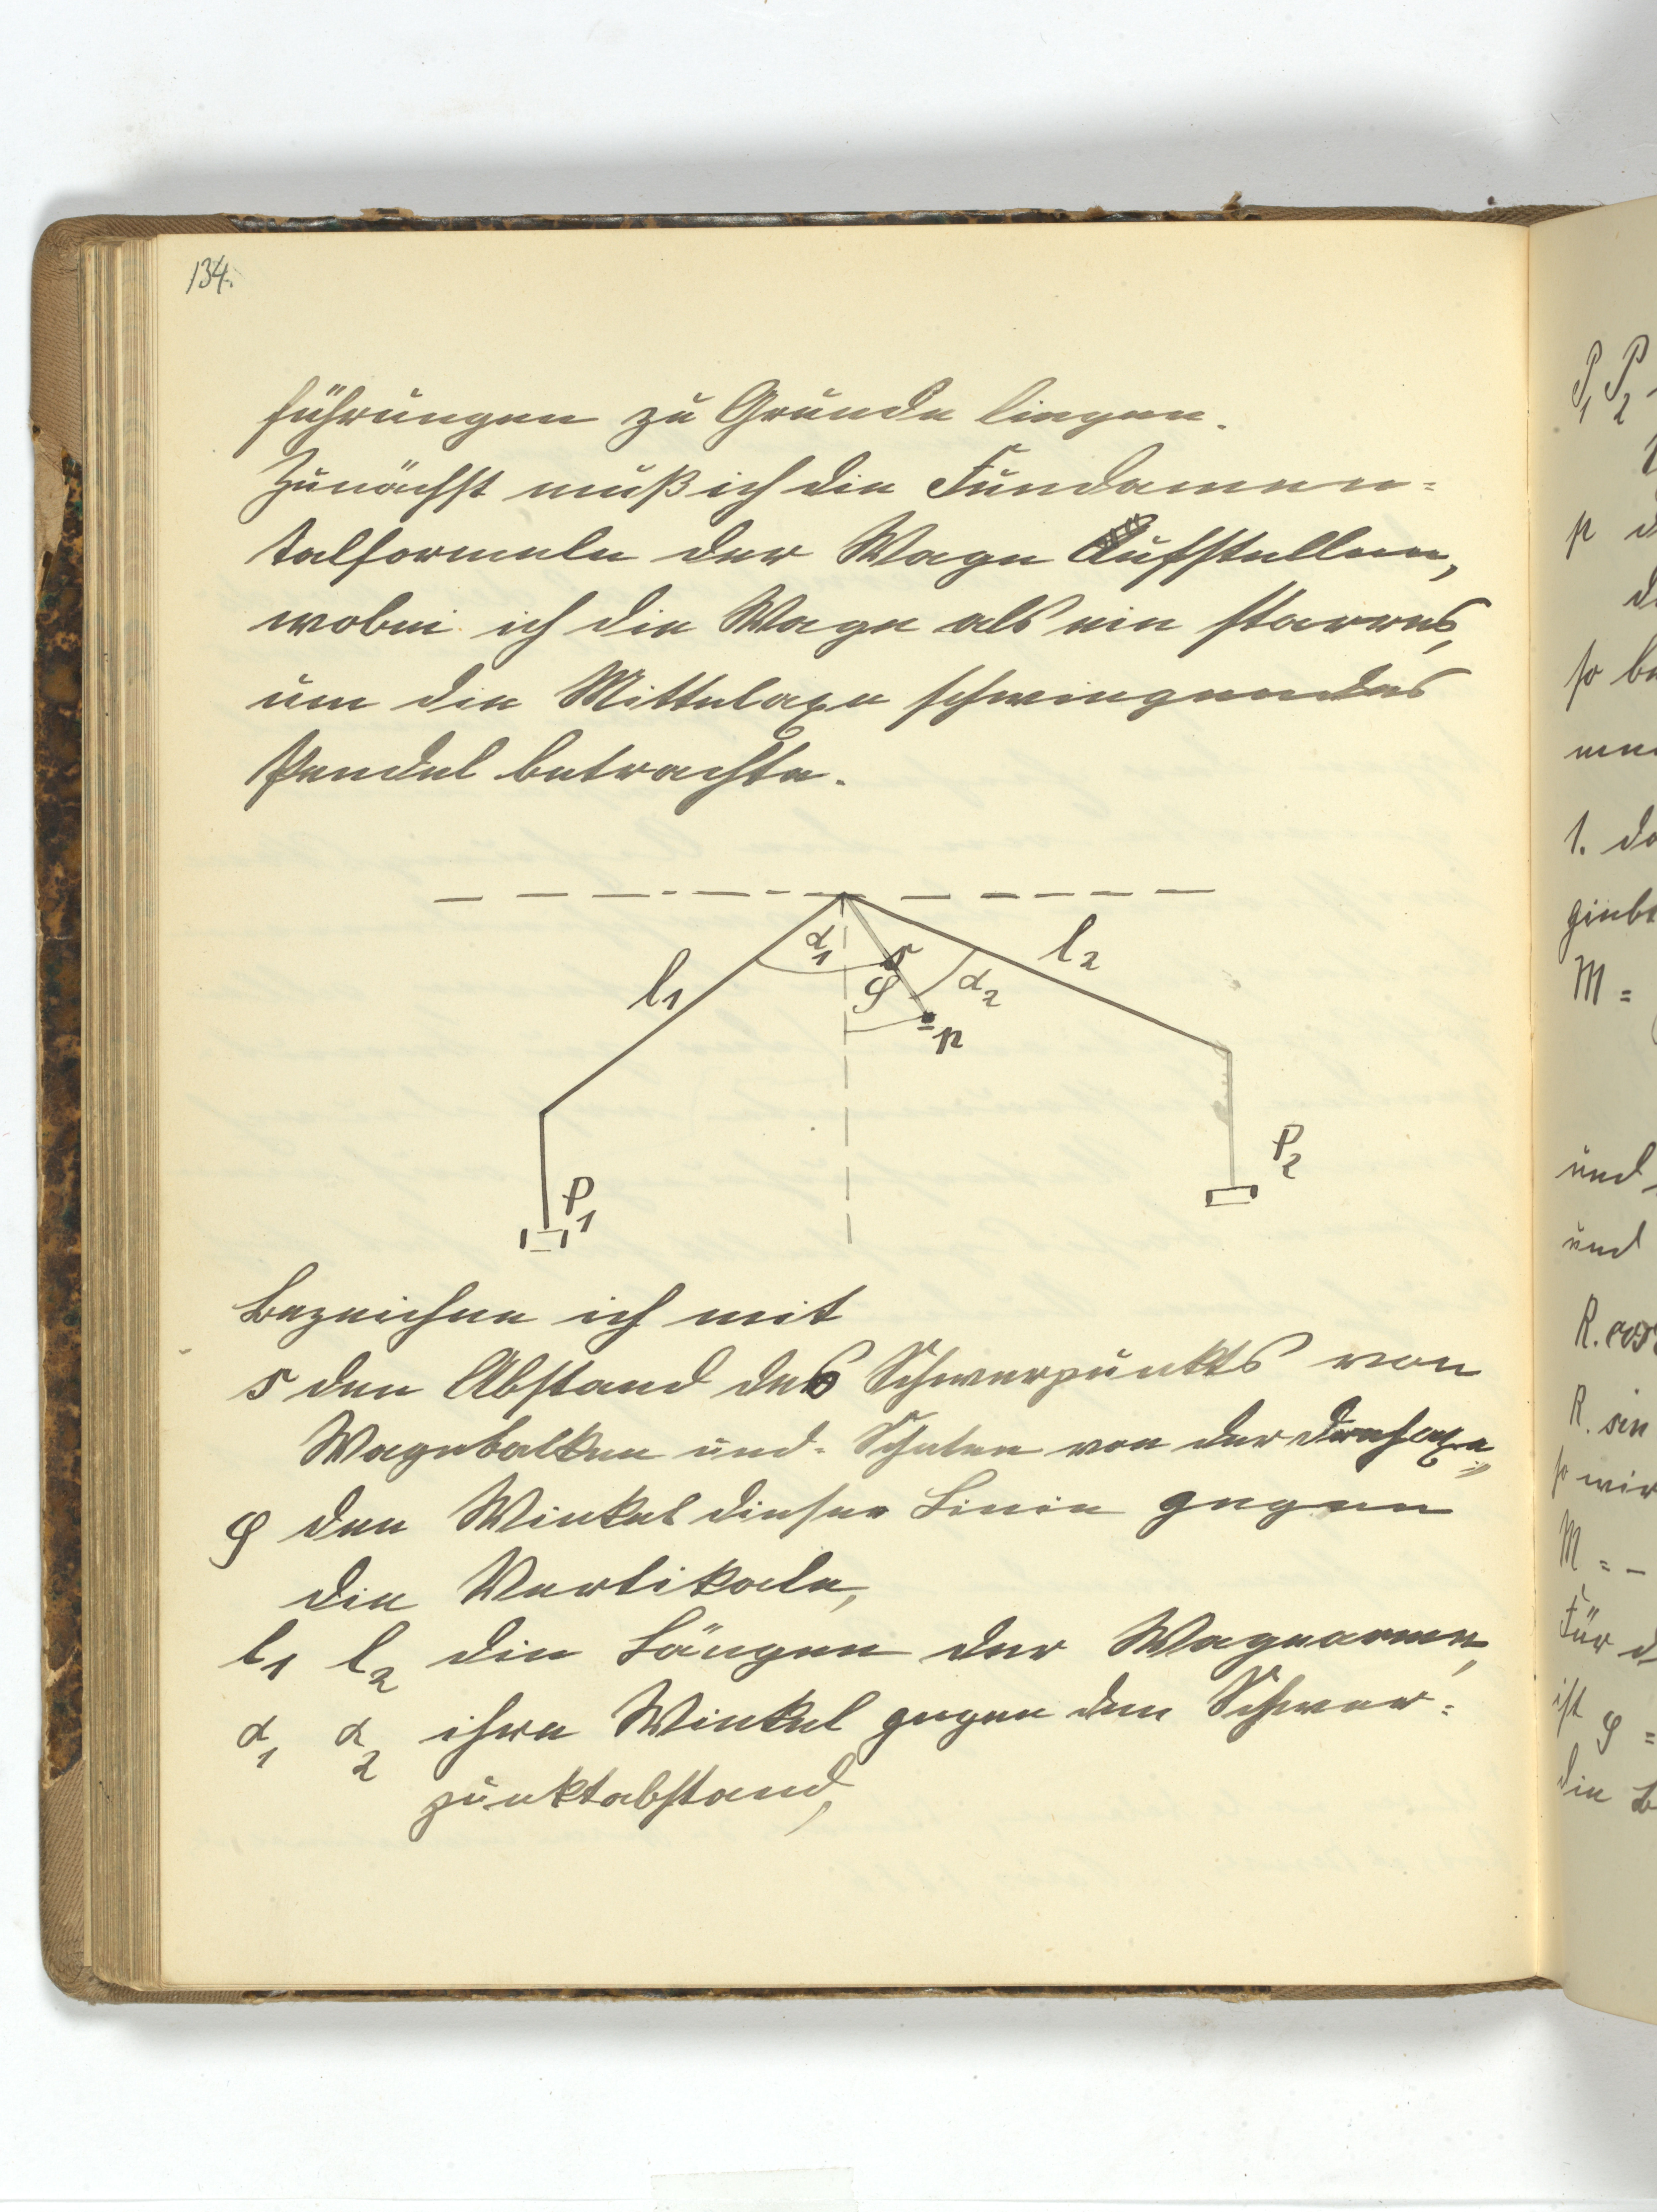 134.
führungen zu Grunde liegen.
Zunächst muß ich die Fundamen=
talformeln der Wage Aufstellen,
wobei ich die Wage als ein starres,
um die Mittelaxe schwingendes
Pendel betrachte.
α1 s l2
l1 φ α2
p
P2
P1
Bezeichne ich mit
s den Abstand des Schwerpunkts von
Wagebalken und Schalen von der Drehaxe,
φ den Winkel dieser Linie gegen
die Vertikale,
l1 l2 die Längen der Wagearme,
α1 α2 ihre Winkel gegen den Schwer=
punktabstand,
P1 P2
p
so be
1. da
giebt
M =
und
und
R. cos
R. sin
so wir
M = -
Für d
ist φ =
die B